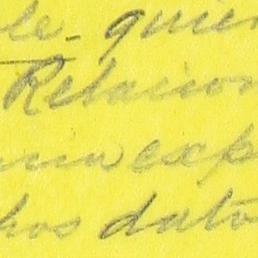 le - quien
Relacion
un exp
hos datos